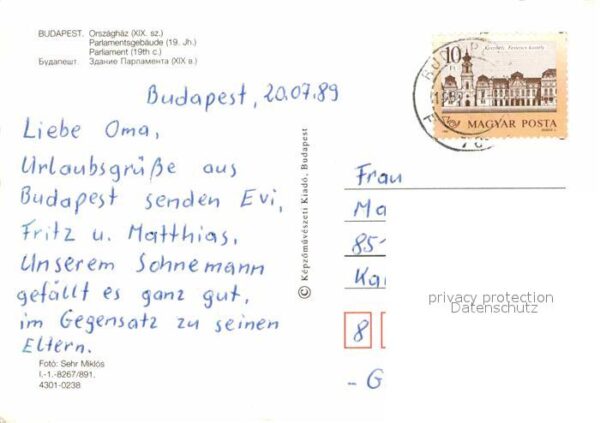 BUDAPEST. Országház (XIX. sz.)
Parlamentsgebäude (19. Jh.)
Parliament (19th c.)
Будапешт. Здание Парламента (XIX в.)
Budapest, 20.07.89
Liebe Oma,
Urlaubsgrüße aus
Budapest senden Evi,
Fritz u. Matthias.
Unserem Sohnemann
gefällt es ganz gut,
im Gegensatz zu seinen
Eltern.
Fotó: Sehr Miklós
I.-1.-8267/891.
4301-0238
© Képzőművészeti Kiadó, Budapest
10
Keszthely, Festetics kastély
MAGYAR POSTA
Frau
Ma
85
Ka
8
- G
privacy protection
Datenschutz